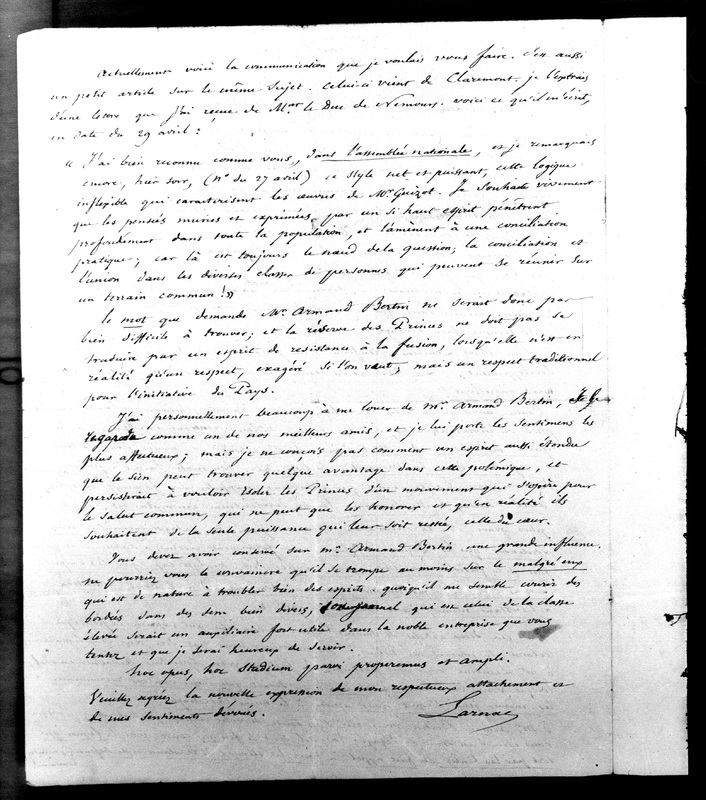 Actuellement voici la communication que je voulais vous faire. c'est aussi
un petit article sur le même sujet. celui-ci vient de Claremont. je l'extrais
d'une lettre que j'ai reçue de Mgr le Duc de Nemours. voici ce qu'il m'écrit,
en date du 29 avril :
« J'ai bien reconnu comme vous, dans l'assemblée nationale, et je remarquais
encore, hier soir, (n° du 27 avril) ce style net et puissant, cette logique
inflexible qui caractérisent les œuvres de Mr Guizot. Je souhaite vivement
que les pensées muries et exprimées par un si haut esprit pénètrent
profondement dans toute la population, et l'amènent à une conciliation
pratique; car là est toujours le nœud de la question; la conciliation et
l'union dans les diverses classes de personnes qui peuvent se réunir sur
un terrain commun! »
Le mot que demande Mr Armand Bertin ne serait donc pas
bien difficile à trouver; et la réserve des Princes ne doit pas se
traduire par un esprit de resistance à la fusion, lorsqu'elle n'est en
réalité qu'un respect, exagéré si l'on veut, mais un respect traditionnel
pour l'initiative du Pays.
J'ai personnellement beaucoup à me louer de Mr Armand Bertin, Je le
regarde comme un de nos meilleurs amis, et je lui porte les sentimens les
plus affectueux; mais je ne conçois pas comment un esprit aussi étendu
que le sien peut trouver quelque avantage dans cette polémique, et
persisterait à vouloir isoler les Princes d'un mouvement qui s'opère pour
le salut commun, qui ne peut que les honorer et qu'en réalité ils
souhaitent de la seule puissance qui leur soit restée, celle du cœur.
Vous devez avoir conservé sur Mr Armand Bertin une grande influence.
ne pourriez vous le convaincre qu'il se trompe au moins sur le malgré eux
qui est de nature à troubler bien des esprits. quoiqu'il me semble courir des
bordées dans des sens bien divers, journal qui est celui de la classe
élevée serait un auxiliaire fort utile dans la noble entreprise que vous
tentez et que je serai heureux de servir.
hoc opus, hoc studium parvi properemus et ampli.
Veuillez agréer la nouvelle expression de mon respectueux attachement et
de mes sentiments dévoués.
Larnac